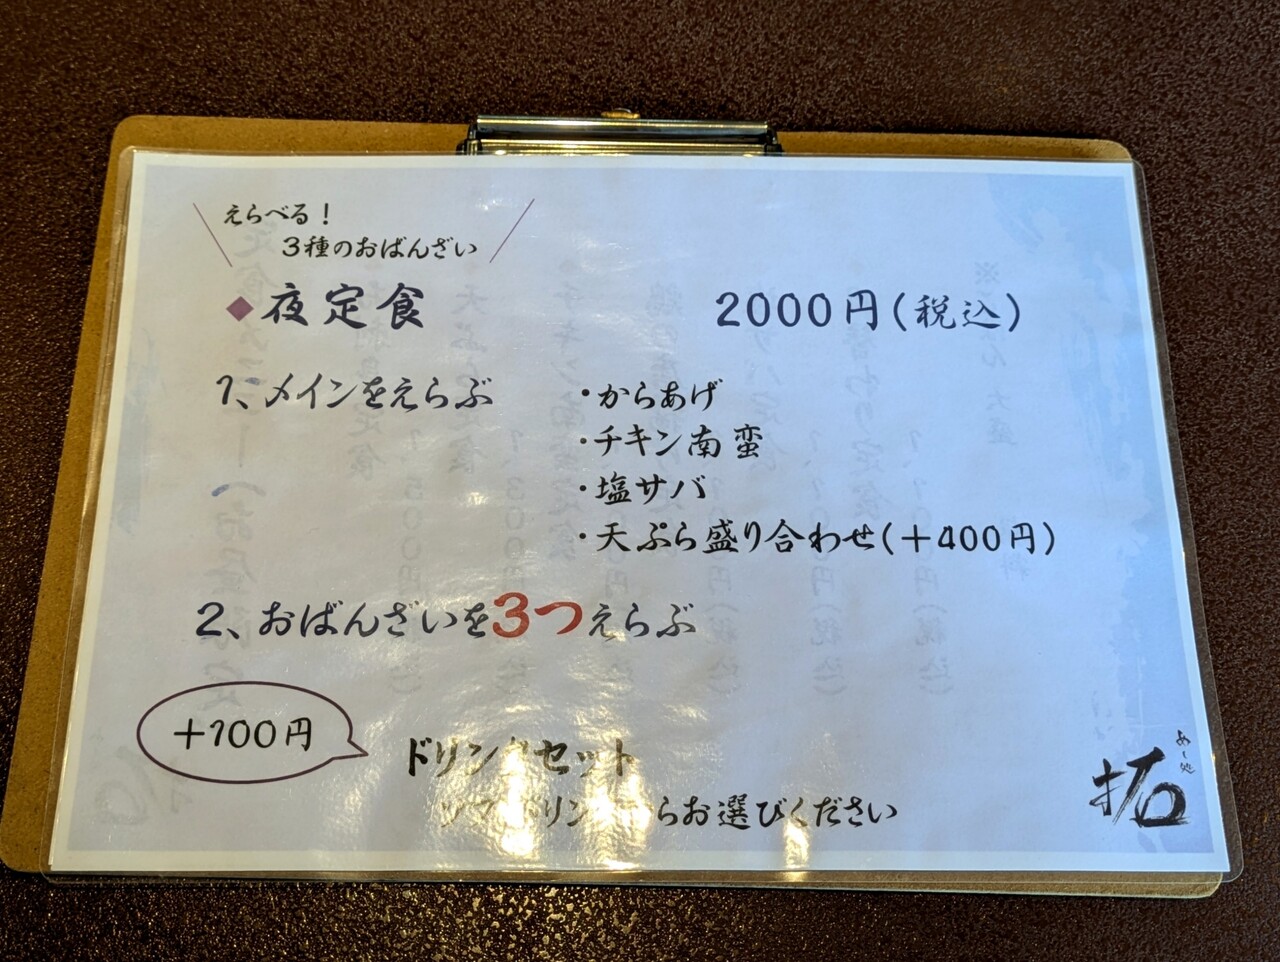 えらべる！
3種のおばんざい
◆夜定食 2000円(税込)
1、メインをえらぶ
・からあげ
・チキン南蛮
・塩サバ
・天ぷら盛り合わせ(+400円)
2、おばんざいを3つえらぶ
+100円
ドリンクセット
ソフトドリンクからお選びください
めし処
拓